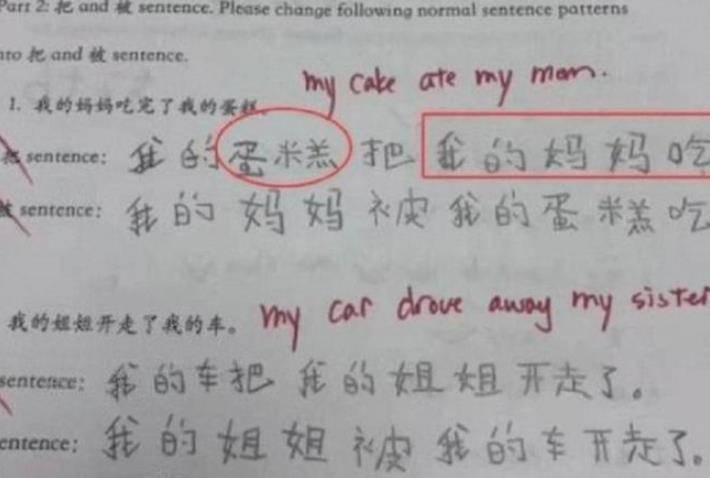 Part 2: 把 and 被 sentence. Please change following normal sentence patterns
nto 把 and 被 sentence.
my cake ate my mom.
1. 我的妈妈吃完了我的蛋糕
把 sentence: 我的蛋糕把我的妈妈吃
被 sentence: 我的妈妈被我的蛋糕吃
my car drove away my sister
我的姐姐开走了我的车。
sentence: 我的车把我的姐姐开走了。
entence: 我的姐姐被我的车开走了。